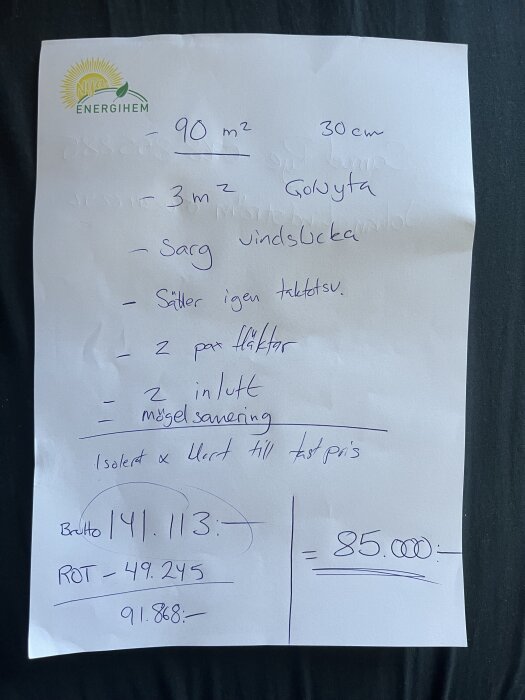 NYA
ENERGIHEM
- 90 m² 30cm
- 3m² Golvyta
- Sarg vindslucka
- Sätter igen takfotsv.
- 2 par fläktar
- 2 inluft
- mögelsanering
Isolerat & klart till fast pris
Brutto 141.113:-
ROT - 49.245
91.868:-
= 85.000:-